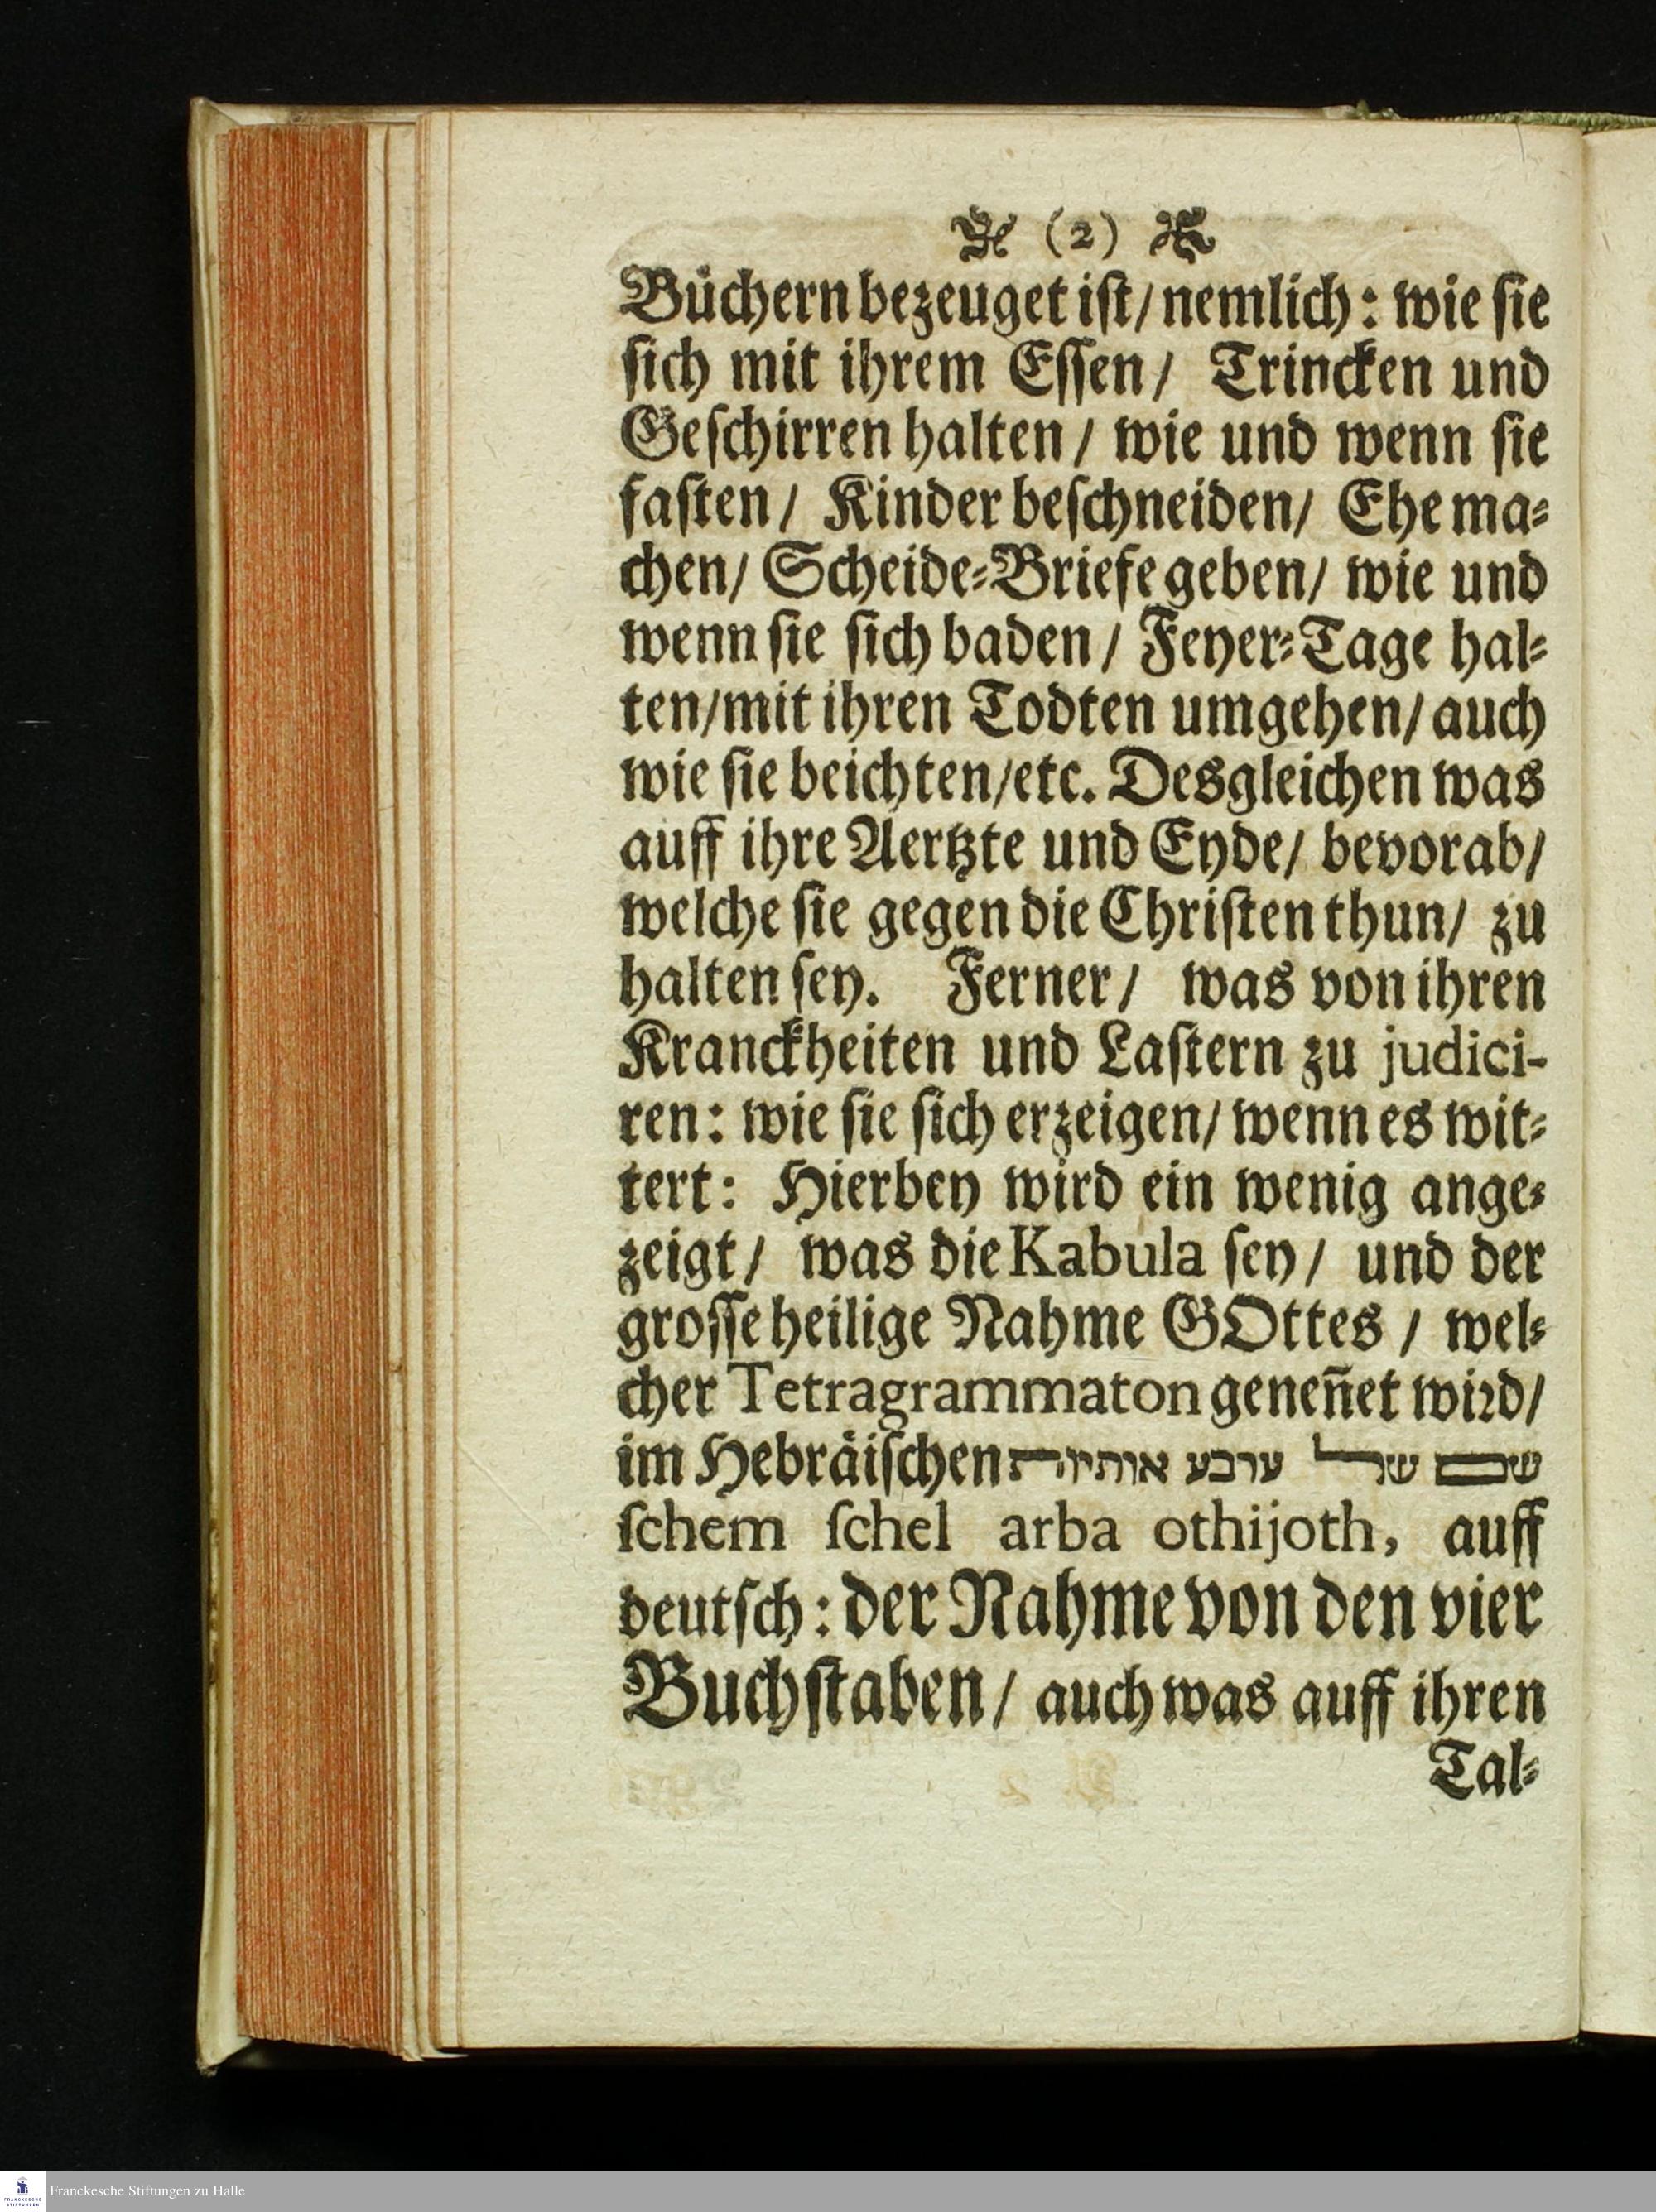 (2)
Buͤchern bezeuget iſt / nemlich: wie ſie
ſich mit ihrem Eſſen / Trincken und
Geſchirren halten / wie und wenn ſie
faſten / Kinder beſchneiden / Ehe ma⸗
chen / Scheide⸗Briefe geben / wie und
wenn ſie ſich baden / Feyer⸗Tage hal⸗
ten / mit ihren Todten umgehen / auch
wie ſie beichten / etc. Desgleichen was
auff ihre Aertzte und Eyde / bevorab /
welche ſie gegen die Chriſten thun / zu
halten ſey. Ferner / was von ihren
Kranckheiten und Laſtern zu judici-
ren: wie ſie ſich erzeigen / wenn es wit⸗
tert: Hierbey wird ein wenig ange⸗
zeigt / was die Kabula ſey / und der
groſſe heilige Nahme GOttes / wel⸗
cher Tetragrammaton geneñet wiꝛd /
im Hebraͤiſchen שם של ערבע אותיות
ſchem ſchel arba othijoth, auff
deutſch: der Nahme von den vier
Buchſtaben / auch was auff ihren
Tal⸗
FRANCKESCHE STIFTUNGEN
Franckesche Stiftungen zu Halle